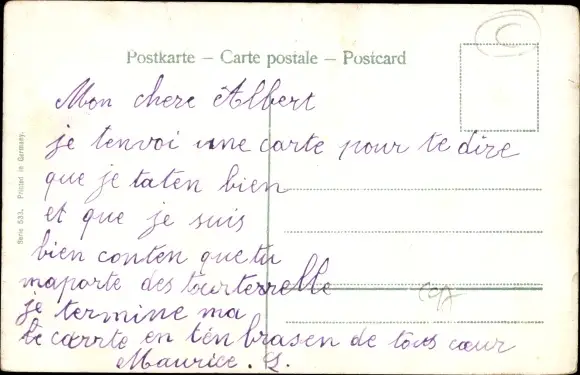 Postkarte – Carte postale – Postcard
Mon chere Albert
je tenvoi une carte pour te dire
que je taten bien
et que je suis
bien conten que tu
maporte des tourterrelle
je termine ma
carte en ten brasen de tous cœur
Maurice. L.
Serie 533. Printed in Germany.